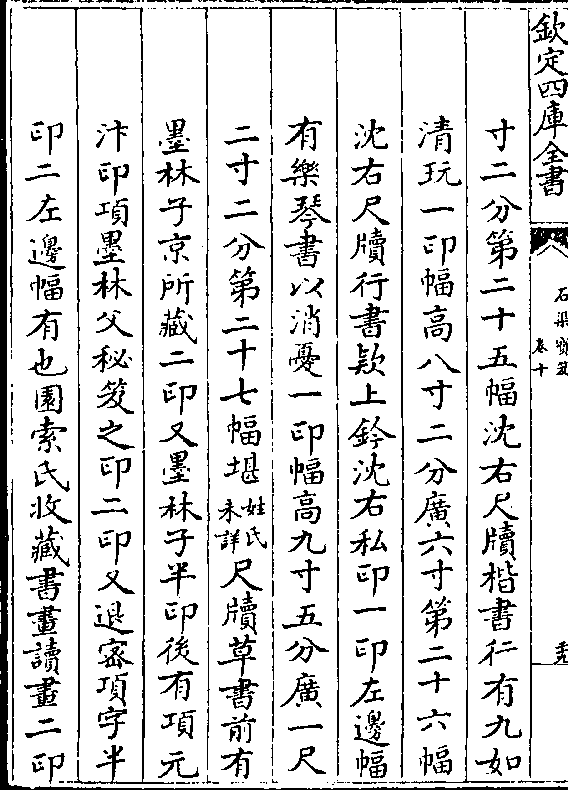 欽定四庫全書
石渠寶笈
卷十
寸二分第二十五幅沈右尺牘楷書行有九如
清玩一印幅高八寸二分廣六寸第二十六幅
沈右尺牘行書欵上鈐沈右私印一印左邊幅
有樂琴書以消憂一印幅高九寸五分廣一尺
二寸二分第二十七幅堪姓氏未詳尺牘草書前有
墨林子京所藏二印又墨林子半印後有項元
汴印項墨林父秘笈之印二印又退密項字半
印二左邊幅有也園索氏收藏書畫讀畫二印